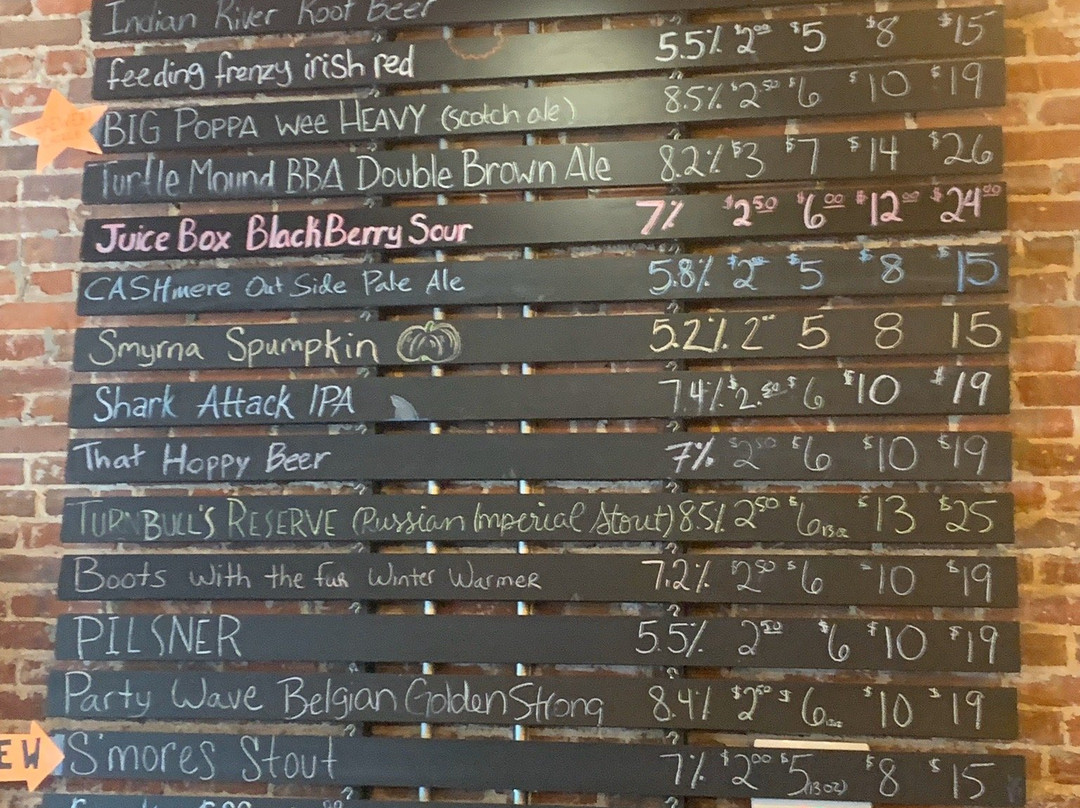 Indian River Root Beer
feeding frenzy irish red 5.5% $2.00 $5 $8 $15
BIG POPPA wee HEAVY (scotch ale) 8.5% $2.50 $6 $10 $19
Turtle Mound BBA Double Brown Ale 8.2% $3 $7 $14 $26
Juice Box BlackBerry Sour 7% $2.50 $6.00 $12.00 $24.00
CASHmere Out Side Pale Ale 5.8% $2.00 $5 $8 $15
Smyrna Spumpkin 5.2% 2.00 5 8 15
Shark Attack IPA 7.4% $2.50 $6 $10 $19
That Hoppy Beer 7% $2.50 $6 $10 $19
TURNBULL'S RESERVE (Russian Imperial Stout) 8.5% 2.50 $6 13oz $13 $25
Boots with the fur Winter Warmer 7.2% $2.50 $6 $10 $19
PILSNER 5.5% 2.50 $6 $10 $19
Party Wave Belgian Golden Strong 8.4% $2.50 $6 $10 $19
EW S'mores Stout 7% $2.00 $5 (13oz) $8 $15